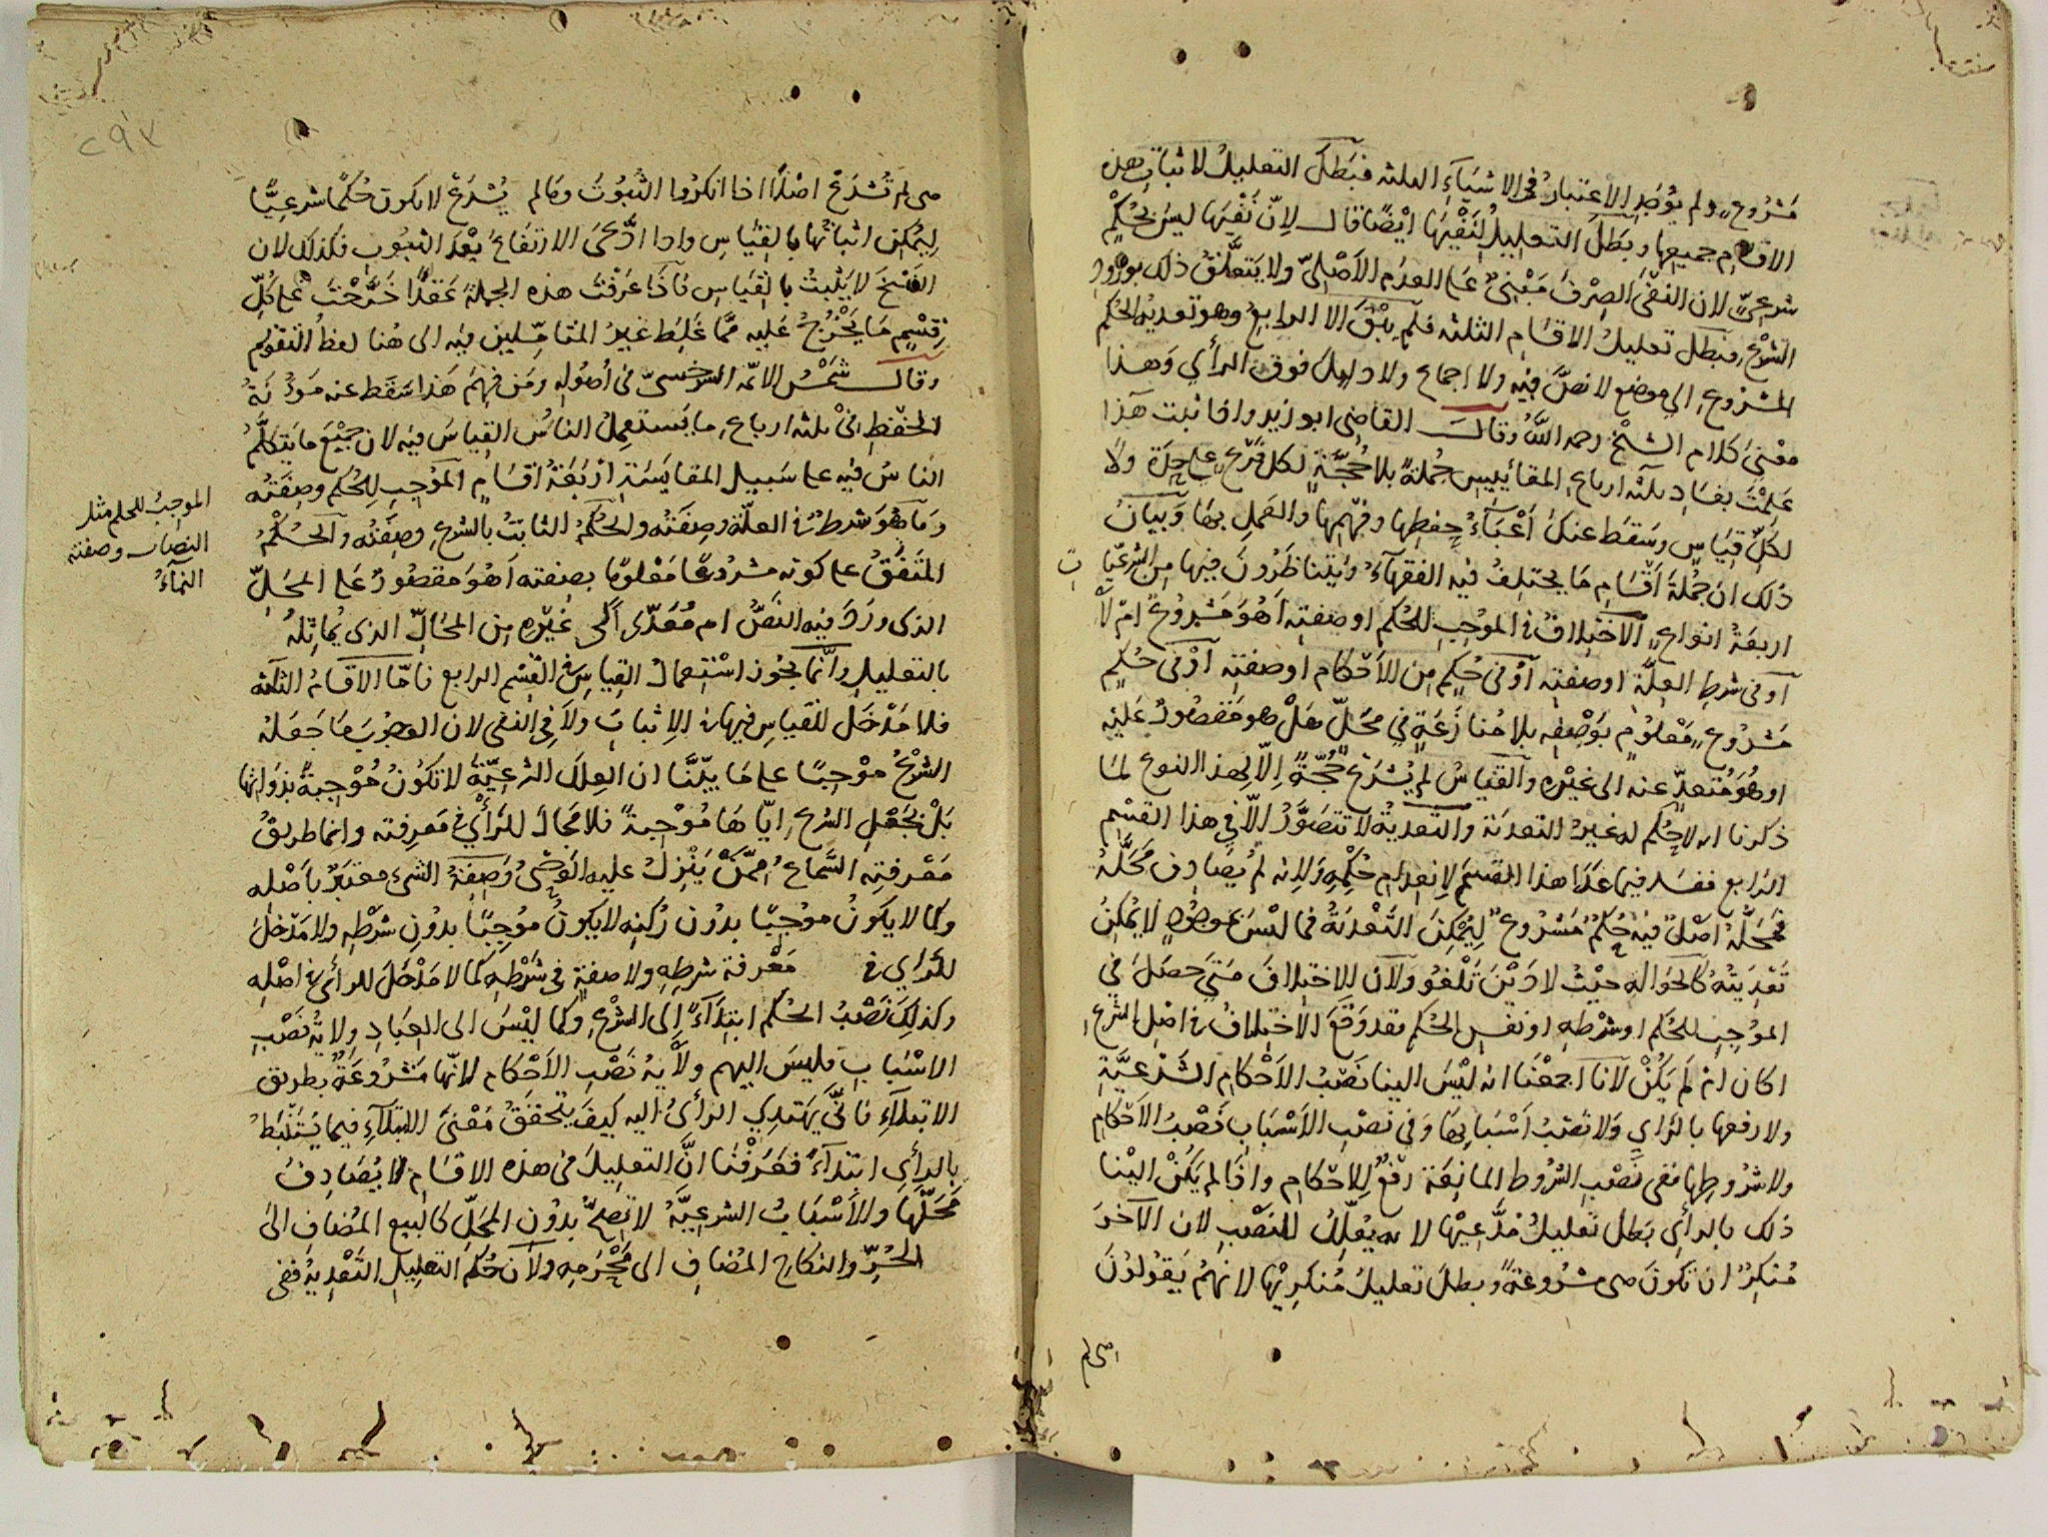 مَشْرُوعٍ ولم يُوجَدِ الاعتبارُ في الاشياءِ الثلثه فبَطَلَ التعليلُ لاثباتِ هذه
الاقسام جميعِها وبَطَلَ التعليلُ لِنَفْيِها ايْضًا قال لِانّ نَفْيَها ليسَ بحُكْمٍ
شرعىٍّ لان النفْىَ الصِرْفَ مَبْنىٌّ على العدَمِ الأصْلِىّ ولا يَتعلَّقُ ذلك بورُودِ
الشرْعِ فبَطل تعليلُ الاقسامِ الثلثه فلم يَبْقَ الا الرابعُ وهو تعديةُ الحُكم
المشروعِ الى موضعٍ لا نصَّ فيه ولا اجماع ولا دليلَ فوق الرأي وَهذا
مَعْنىٰ كلام الشيْخ رحمه اللّٰهُ وقالَ القاضى ابو زيد واذا ثبتَ هَذا
عَلِمْتَ بفسَادِ ثلثه ارباعِ المقائيسِ جُملةً بلا حُجَّةٍ لكل فَرْعٍ على حِدَةٍ ولا
لكلّ قِيَاسٍ وسَقَط عنكَ أعْبَاءُ حِفظِها وفَهْمِها والعَملِ بهَا وَبَيانُ
ذلك ان جُمْلةَ أقْسَامِ مَا يختلِفُ فيه الفقهآءُ ويَتناظَرُونَ فيها مِن الشرعيّا
ت
اربعَةُ انواعٍ الاختِلافُ في الموُجِبِ للحُكمِ او صِفتِه أهُوَ مَشْرُوعٌ امْ لَا
أو فى شرطِ العِلّةِ او صفتِه أوْ فى حُكمٍ مِن الأحْكام او صفتِه أوْ فى حُكمٍ
مَشْرُوعٍ مَعْلوُمٍ بوَصْفِه بلا مُنازَعَةٍ في محَلّ هَلْ هو مَقصُورٌ عَليْه
او هُوَ مُتعدٍّ عنه الى غيْرِه والقياسُ لم يُشرَعْ حُجّةً إلّا لِهذا النوع لمَا
ذكرنا انه لا حُكم له غيرُ التعديَة والتّعديةُ لا تتصَوَّرُ الّا في هذا القسْمِ
الرَابع ففسَد فيما عَدَا هذا القسْمَ لِانعدامِ حُكْمِه وَلِانه لم يُصَادِف مَحَلَّهُ
فمَحَلُّه اصْلٌ فيْهِ حُكْمٌ مَشْرُوعٌ لِيُمْكِنَ التَّعْديَةُ فما ليْسَ بموجُودٍ لا يُمْكِنُ
تَعْدِيَتُهُ كالحَوَاله حيْثُ لا دَيْنَ تَلْغُو ولأن الاختِلافَ مَتىَ حصَلَ في
الموُجِبِ للحُكم او شَرْطِهِ او نفسِ الحُكم فقد وَقَعَ الاختِلافُ فى اصْلِ الشرعِ
اكان ام لم يَكُنْ لأنا اجمعْنَا انه ليْسَ الينا نَصْبُ الأحْكامِ الشَرْعيَّةِ
ولا رفعها بالرَأيِ وَلا نَصْبُ أسْبَابِها وَفى نَصْبِ الأسْبَابِ نَصْبُ الأحْكامِ
ولا شرُوطِها ففى نَصْبِ الشرُوط المانِعَة رَفْعٌ لِلاحْكامِ واذا لم يَكُنْ اليْنا
ذلك بالرأىِ بَطلَ تعليلُ مُدَّعِيْها لانه يُعلِّلُ للنصْبِ لان الآخَرَ
مُنكِرٌ ان تكونَ هى مشرُوعةً وبطلَ تعليلُ مُنكرِيْها لانهمْ يَقولوُنَ
هى لم
هى لم تُشْرَعْ اصْلًا اذا انكرُوا الثبُوْتَ ومَالم يُشرَعْ لا يكون حُكْمًا شرعِيًّا
لِيُمكِنَ اثباتُها بالقيَاسِ واذا ادَّعىَ الارتفَاعَ بَعْدَ الثبُوتِ فكذلك لان
النَسْخَ لا يَثبتُ بالقيَاسِ فاذَا عَرَفْتَ هذه الجملةَ عَقدًا خَرَّجْتَ على كلِّ
قِسْمٍ مَا يَخْرُجُ عَليه مِمَّا غَلِطَ غيرُ المتأمِّلين فيْه الى هُنا لفظُ التقويم
وقالَ شَمْسُ الائمه السرخسىّ فى أصُوله ومَن فهِمَ هَذا سَقَط عنه مَؤُنَةُ
الحِفظِ فىْ ثلثه ارباعِ ما يَستعمِلُ الناسُ القِياسَ فيه لان جَميْعَ ما يتكلَّمُ
الناسُ فيْه على سَبيلِ المقايَسَة أرْبَعَةُ اقسَامٍ الموُجِبِ لِلحُكم وصِفَتُه
وَمَا هُوَ شرطٌ فى العلّة وصِفَتُه والحُكمُ الثابتُ بالشرع وصِفَتُه والحُكْمُ
المتفَقُ على كونه مشرُوعًا مَعْلومًا بصِفته أهُوَ مَقصُورٌ عَلى المحَلّ
الذى ورَدَ فيه النَصُّ ام مُعَدّىً الى غيْرِه مِن المحَالِّ الذى يُماثلُهُ
بالتعليل وانّما يجُوز اسْتِعمالُ القِياسِ فى القِسْم الرابع فامّا الاقسَامُ الثلثه
فلا مَدْخَلَ للقياسِ فيها فى الإثباتِ وَلا فى النفى لان الموُجِبَ مَا جَعَلهُ
الشرْعُ موُجِبًا على مَا بيّنّا ان العِلَلَ الشرعيّةَ لا تكُوْنُ مُوْجِبةً بذوَاتِها
بَلْ بجَعْلِ الشرع ايّاهَا مُوْجِبةً فلا مَجَالَ للرَأْى فى مَعرفته وانما طريقُ
مَعْرفتِه السَّماعُ ممَّنْ يَنْزِلُ عليه الوَحْىُ وَصِفةُ الشئ معتبَرٌ بأصْلِه
وكما لا يكوُنُ موُجِبًا بدُون رُكنِه لا يكونُ موُجِبًا بدُونِ شرْطِه ولا مَدْخلَ
للرَاي فى مَعْرفة شرطِهِ ولا صفةٍ فى شَرْطِهِ كما لا مَدْخَلَ للرأى فى اصْلِه
وكذلِكَ نَصْبُ الحُكم ابتِدَآءً إلى الشرْعِ وكما ليْسَ الى العِبَادِ ولايةُ نَصْبِ
الاسْبَابِ فليسَ اليهم ولَايةُ نَصْبِ الأحْكامِ لانّها مَشْرُوعَةٌ بطريق
الابتلآءِ فانّىٰ يَهتدِي الرَأىُ اليه كيفَ يتحَقّقُ مَعْنىَ الابتلآءِ فيما يُستَنْبَطُ
بالرأى ابتدآءً فعَرَفْنَا انَّ التعليلَ فى هذه الاقسَامِ لا يُصَادِفُ
مَحَلَّهَا والأسْبَابُ الشرعِيَّةُ لا تَصِحُّ بدُون المحَلّ كالبيع المُضاف الىٰ
الحُرِّ والنكاحِ المُضافِ الى مَحْرَمِهِ ولأن حُكمَ التعليل التَعْديةُ ففى
الموجِبُ للحكم مثل
النصاب وصفته
النمآءُ
٢٩٣